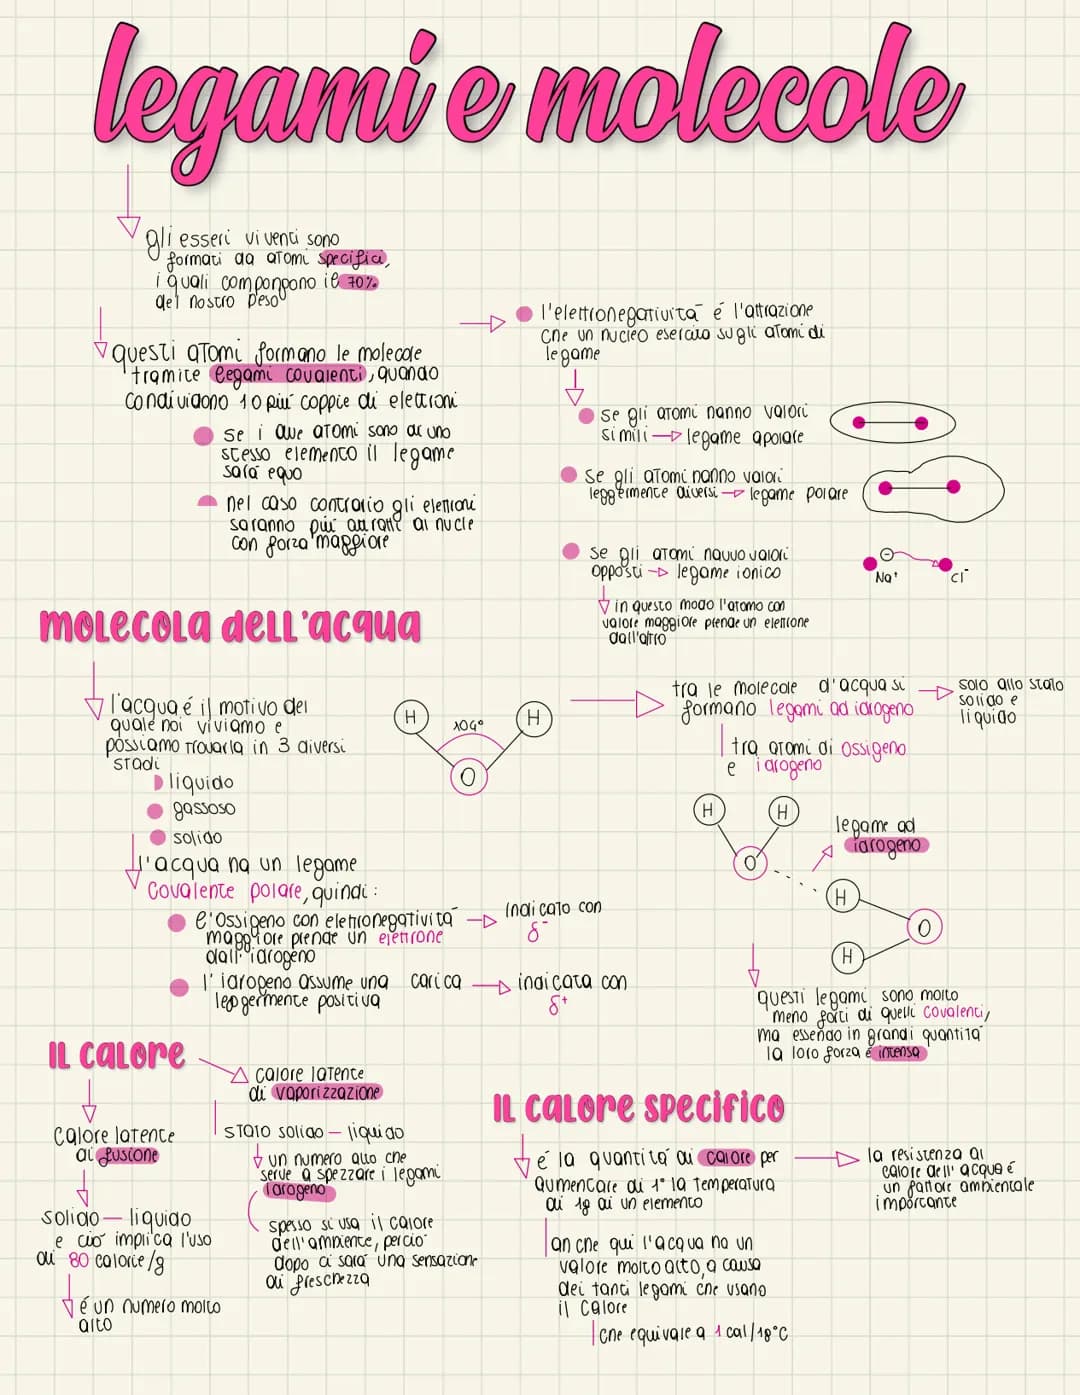 legami e molecole
gli esseri viventi sono
formati da atomi specifici,
i quali compongono il 70%
del nostro peso
questi atomi formano le molecole
tramite legami covalenti, quando
condividono 1 o più coppie di elettroni
se i due atomi sono di uno
stesso elemento il legame
sarà equo
nel caso contrario gli elettroni
saranno più attratti ai nuclei
con forza maggiore
l'elettronegatività é l'attrazione
che un nucleo esercita sugli atomi di
legame
se gli atomi hanno valori
simili → legame apolare
se gli atomi hanno valori
leggermente diversi → legame polare
se gli atomi hanno valori
opposti → legame ionico
Na⁺ Cl⁻
in questo modo l'atomo con
valore maggiore prende un elettrone
dall'altro
molecola dell'acqua
l'acqua é il motivo del
quale noi viviamo e
possiamo trovarla in 3 diversi
stadi
liquido
gassoso
solido
H 104° H
O
l'acqua ha un legame
covalente polare, quindi:
l'ossigeno con elettronegatività
maggiore prende un elettrone
dall'idrogeno
indicato con
δ⁻
l'idrogeno assume una carica
leggermente positiva
indicata con
δ⁺
tra le molecole d'acqua si
formano legami ad idrogeno
solo allo stato
solido e
liquido
tra atomi di ossigeno
e idrogeno
H H
O
legame ad
idrogeno
H
O
H
questi legami sono molto
meno forti di quelli covalenti,
ma essendo in grandi quantità
la loro forza é intensa
il calore
calore latente
di fusione
solido — liquido
e ciò implica l'uso
di 80 calorie/g
é un numero molto
alto
calore latente
di vaporizzazione
stato solido — liquido
un numero alto che
serve a spezzare i legami
idrogeno
spesso si usa il calore
dell'ambiente, perciò
dopo ci sarà una sensazione
di freschezza
il calore specifico
é la quantità di calore per
aumentare di 1° la temperatura
di 1g di un elemento
la resistenza al
calore dell'acqua é
un fattore ambientale
importante
anche qui l'acqua ha un
valore molto alto, a causa
dei tanti legami che usano
il calore
che equivale a 1 cal/1g°C